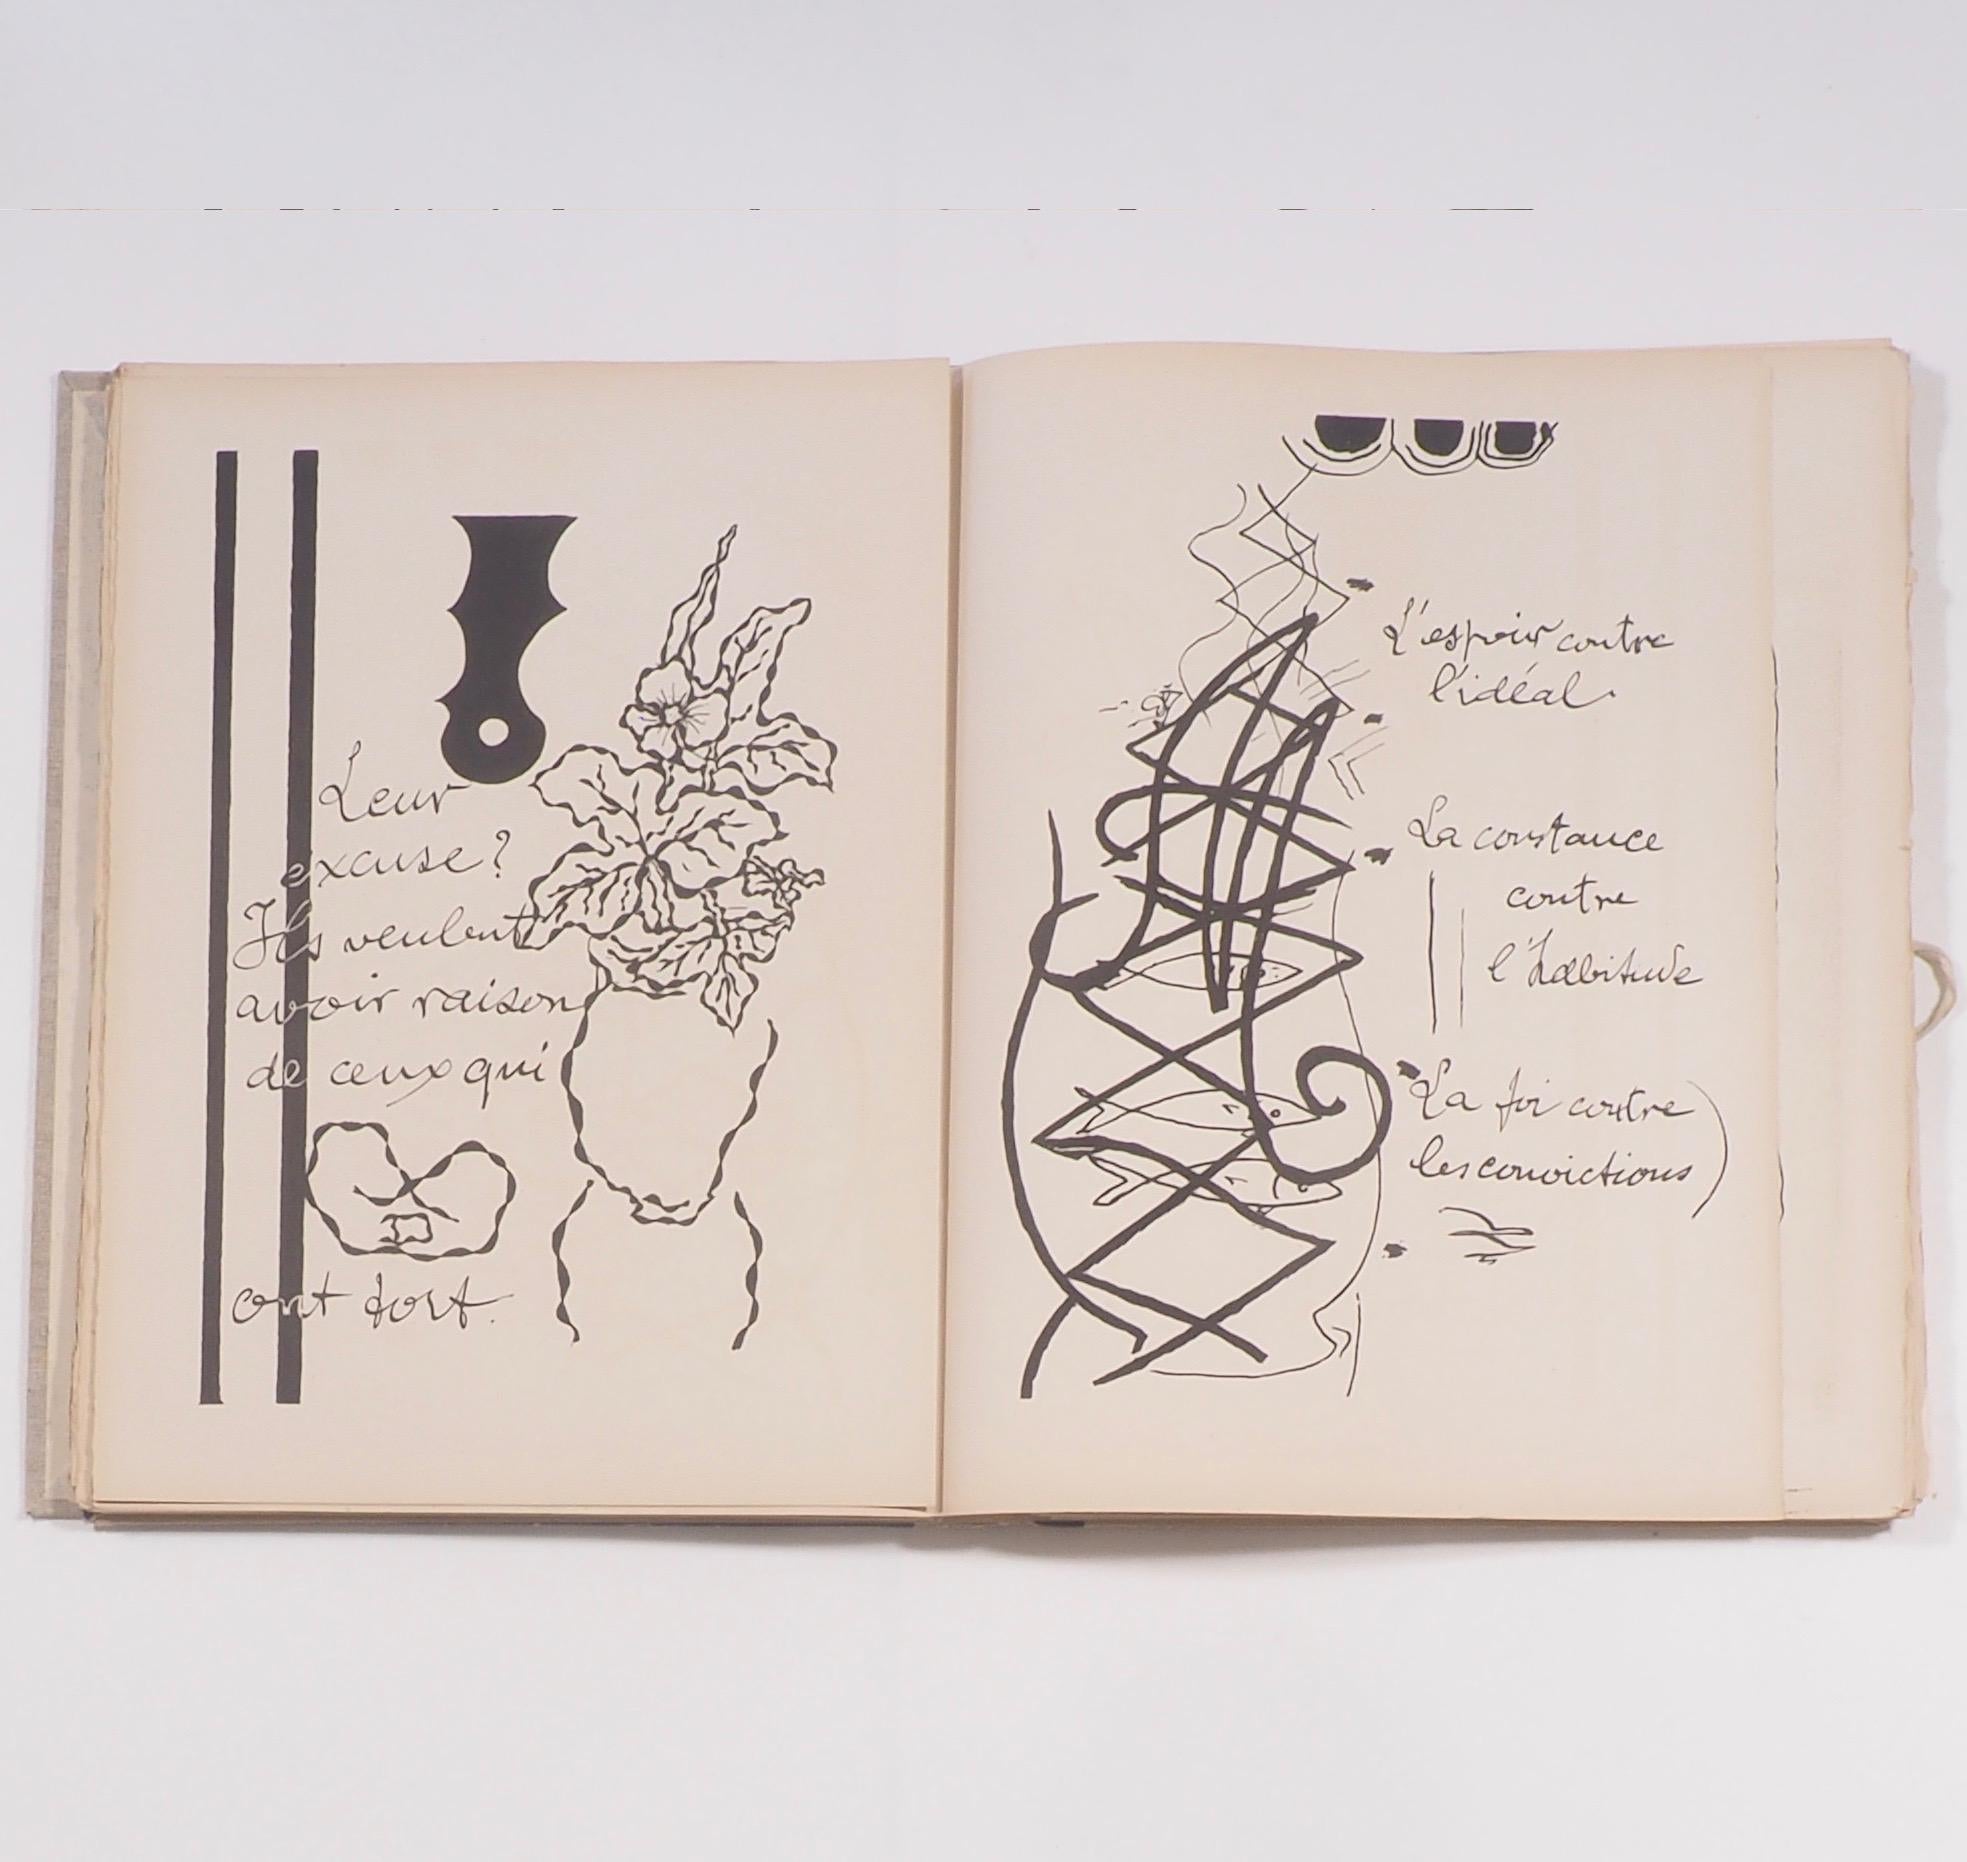 Leur
excuse ?
Ils veulent
avoir raison
de ceux qui
ont tort.
L'espoir contre
l'idéal.
La constance
contre
l'habitude
La foi contre
les convictions)